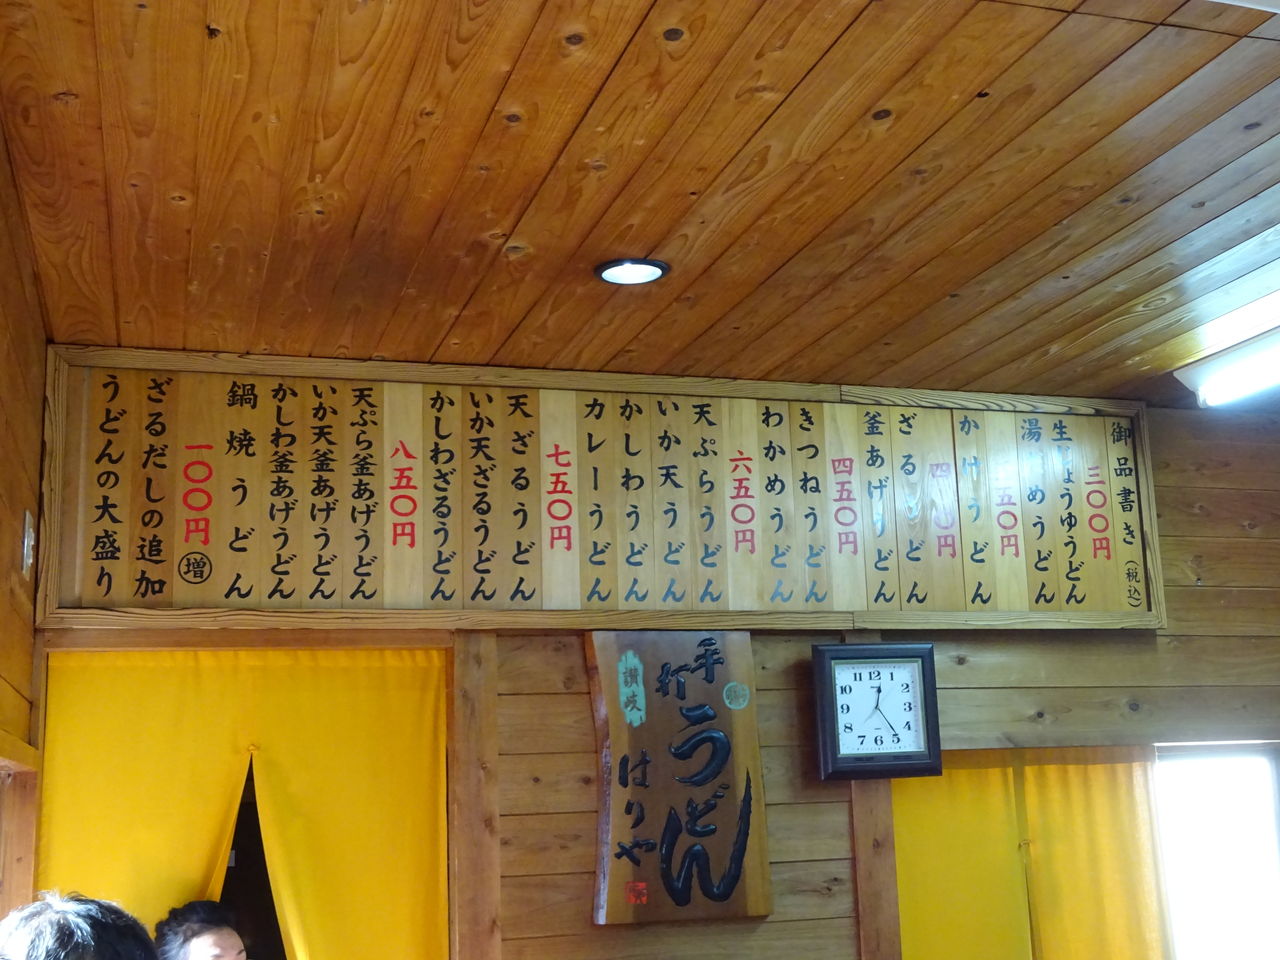 御品書き（税込）
三〇〇円
生じょうゆうどん
湯だめうどん
五〇円
かけうどん
四〇円
ざるうどん
釜あげうどん
四五〇円
きつねうどん
わかめうどん
六五〇円
天ぷらうどん
いか天うどん
かしわうどん
カレーうどん
七五〇円
天ざるうどん
いか天ざるうどん
かしわざるうどん
八五〇円
天ぷら釜あげうどん
いか天釜あげうどん
かしわ釜あげうどん
鍋焼うどん
一〇〇円増
ざるだしの追加
うどんの大盛り
手打
うどん
讃岐
はりや
12
1
2
3
4
5
6
7
8
9
10
11